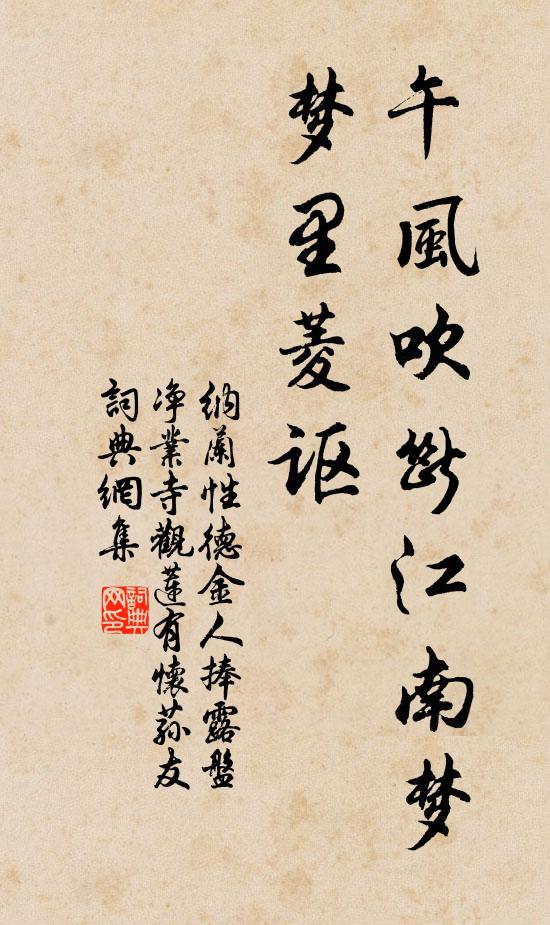 午風吹斷江南梦
梦里菱讴
纳蘭性德金人捧露盤
净業寺觀蓮有懷荪友
詞典網集
詞典
网印